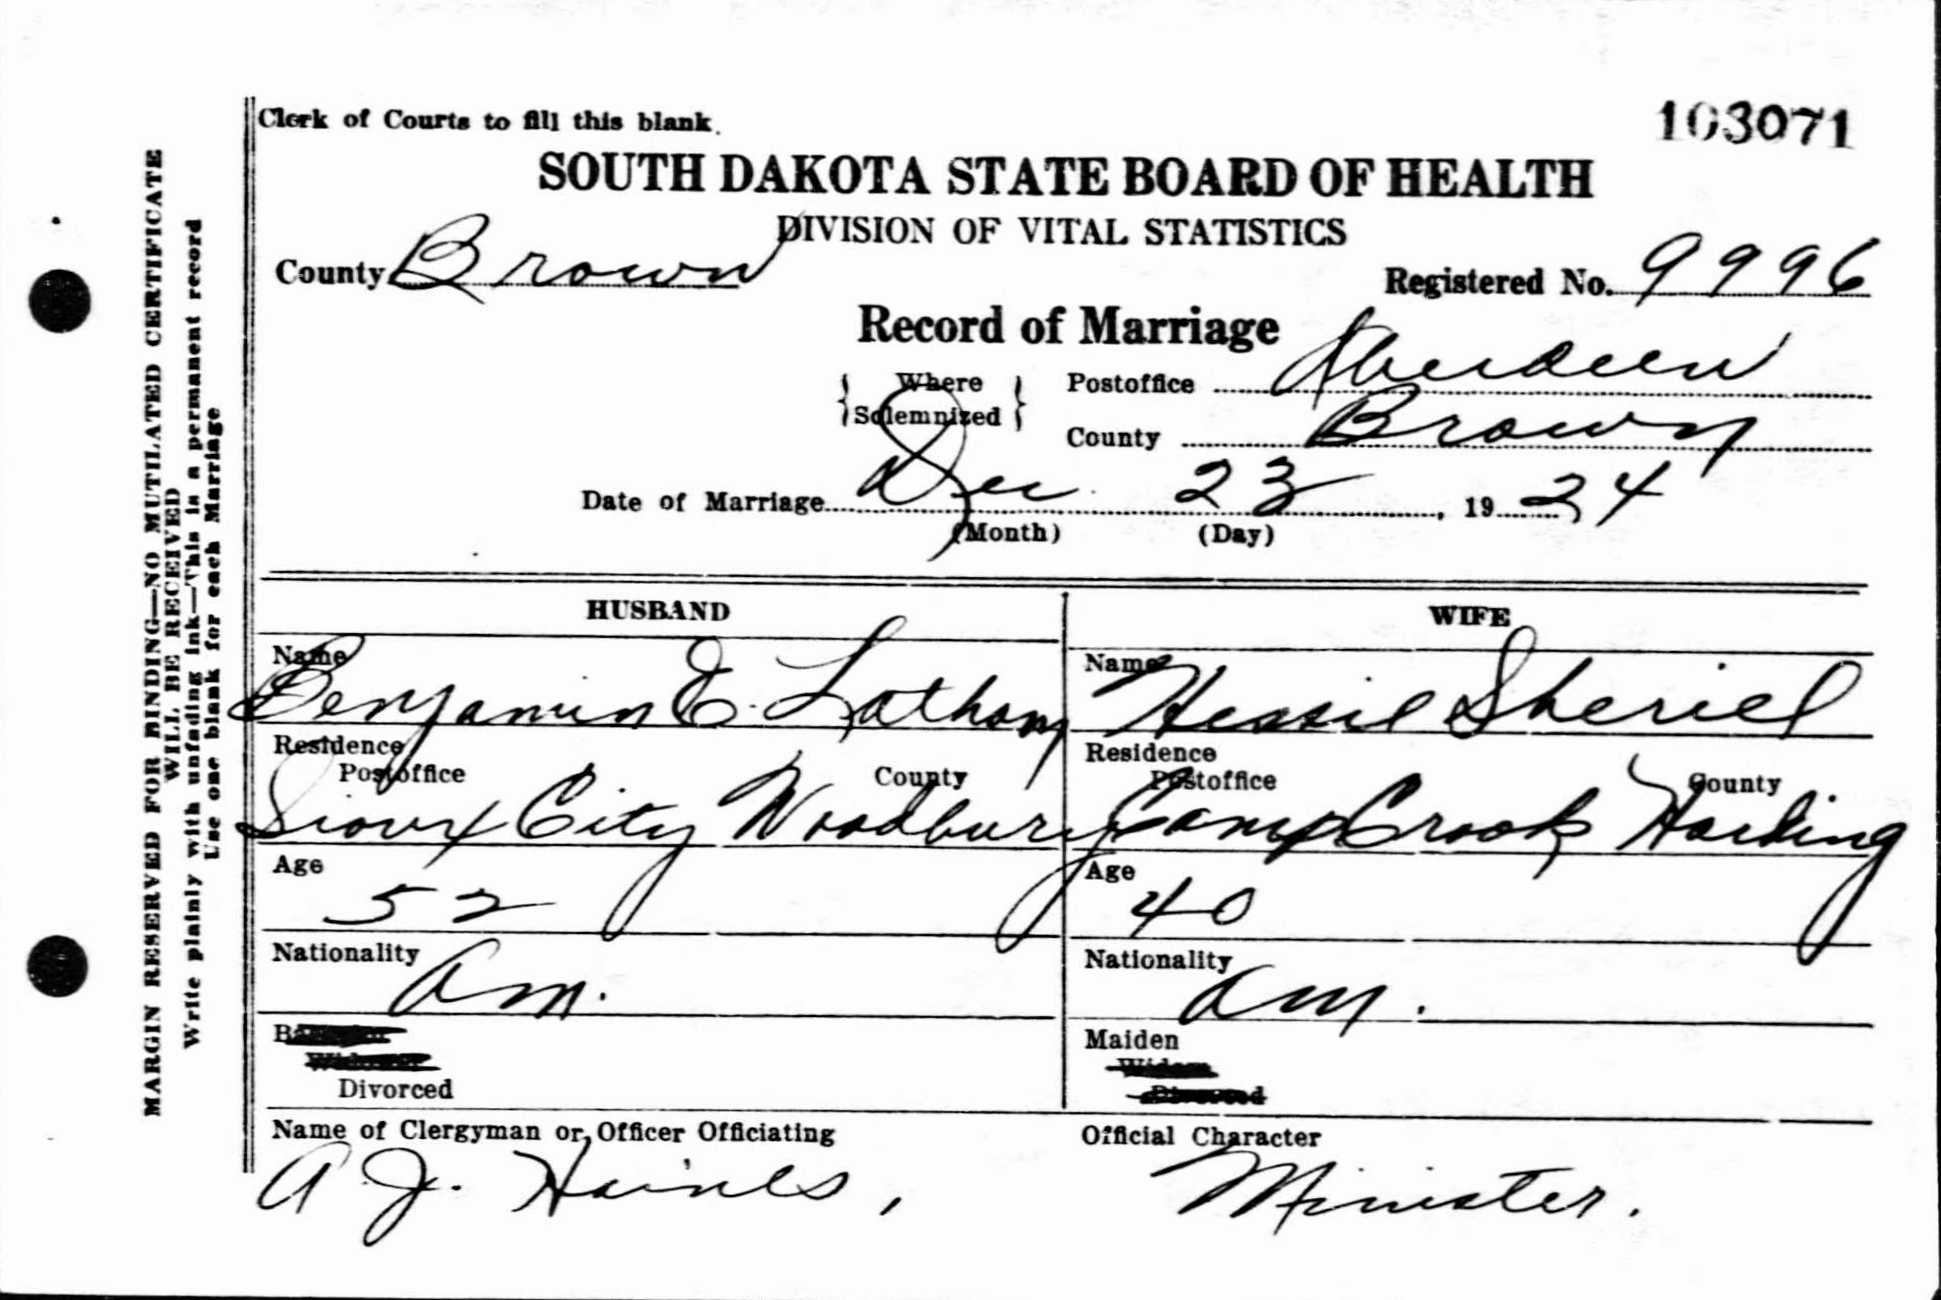 Clerk of Courts to fill this blank.
103071
SOUTH DAKOTA STATE BOARD OF HEALTH
DIVISION OF VITAL STATISTICS
County Brown
Registered No. 9996
Record of Marriage
Where Solemnized
Postoffice Aberdeen
County Brown
Date of Marriage Dec 23, 1924
(Month) (Day)
MARGIN RESERVED FOR BINDING—NO MUTILATED CERTIFICATE
WILL BE RECEIVED
Write plainly with unfading ink—This is a permanent record
Use one blank for each Marriage
HUSBAND
Name
Benjamin E. Latham
Residence
Postoffice County
Sioux City Woodbury
Age
52
Nationality
Am.
Divorced
WIFE
Name
Hessie Sheriel
Residence
Postoffice County
Camp Crook Harding
Age
40
Nationality
Am.
Maiden
Widow
Divorced
Name of Clergyman or Officer Officiating
A. J. Haines,
Official Character
Minister.